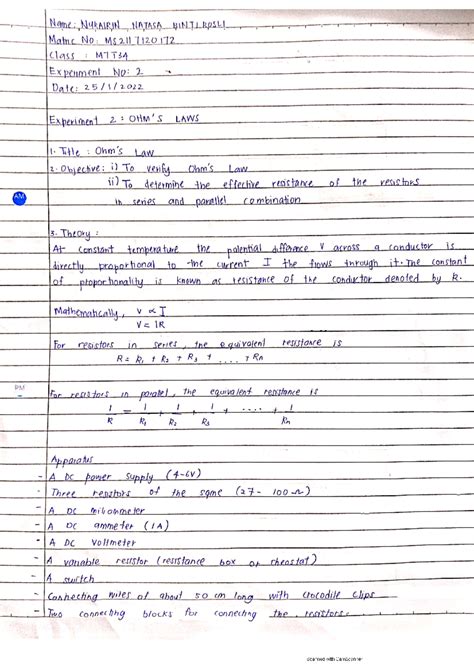 Name: NURAIRIN NATASA BINTI ROSLI
Matric No: MS2117120172
Class : M7T34
Experiment No: 2
Date: 25/1/2022
Experiment 2 : OHM'S LAWS
1. Title : Ohm's Law
2. Objective: i) To verify Ohm's Law
ii) To determine the effective resistance of the resistors
AM
in series and parallel combination
3. Theory :
At constant temperature the potential difference V across a conductor is
directly proportional to the current I the flows through it. The constant
of proportionality is known as resistance of the conductor denoted by R.
Mathematically, V ∝ I
V = IR
For resistors in series, the equivalent resistance is
R = R1 + R2 + R3 + .... + Rn
PM
For resistors in parallel, the equivalent resistance is
1/R = 1/R1 + 1/R2 + 1/R3 + .... + 1/Rn
Apparatus
- A DC power supply (4-6V)
- Three resistors of the same (27 - 100 Ω)
- A DC
- A DC ammeter (1A)
- A DC voltmeter
- A variable resistor (resistance box or rheostat)
- A switch
- Connecting wires of about 50 cm long with crocodile clips
- Two connecting blocks for connecting the resistors.
Scanned with CamScanner